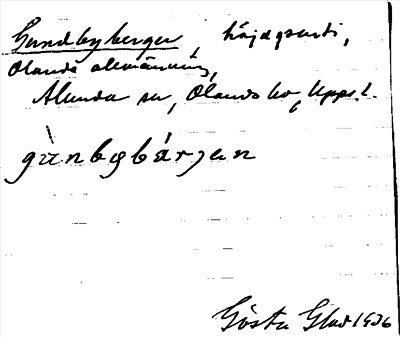 Gundbyberget, höjdparti,
Olands allmänning,
Alunda sn, Olands hd, Upps. l.
gùnbybárjen
Gösta Glad 1936